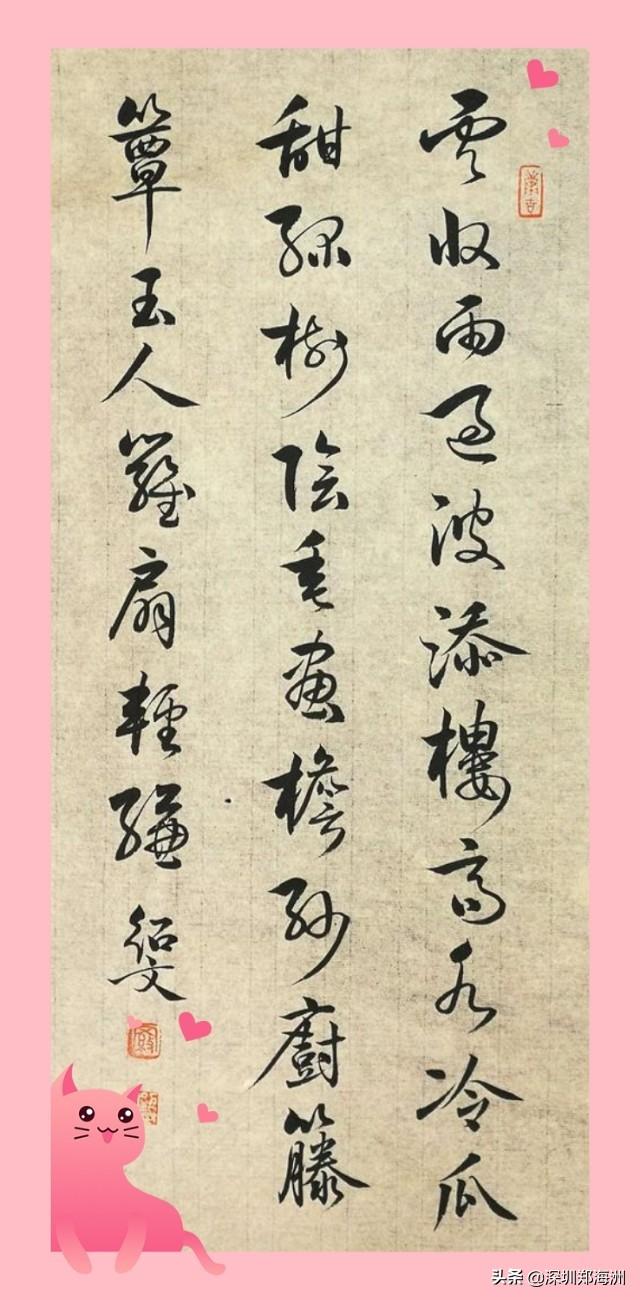 雲收雨過波添樓高水冷瓜
甜綠樹陰垂畫檐紗廚籐
簟玉人羅扇輕縑 紹文
头条 @深圳郑海洲